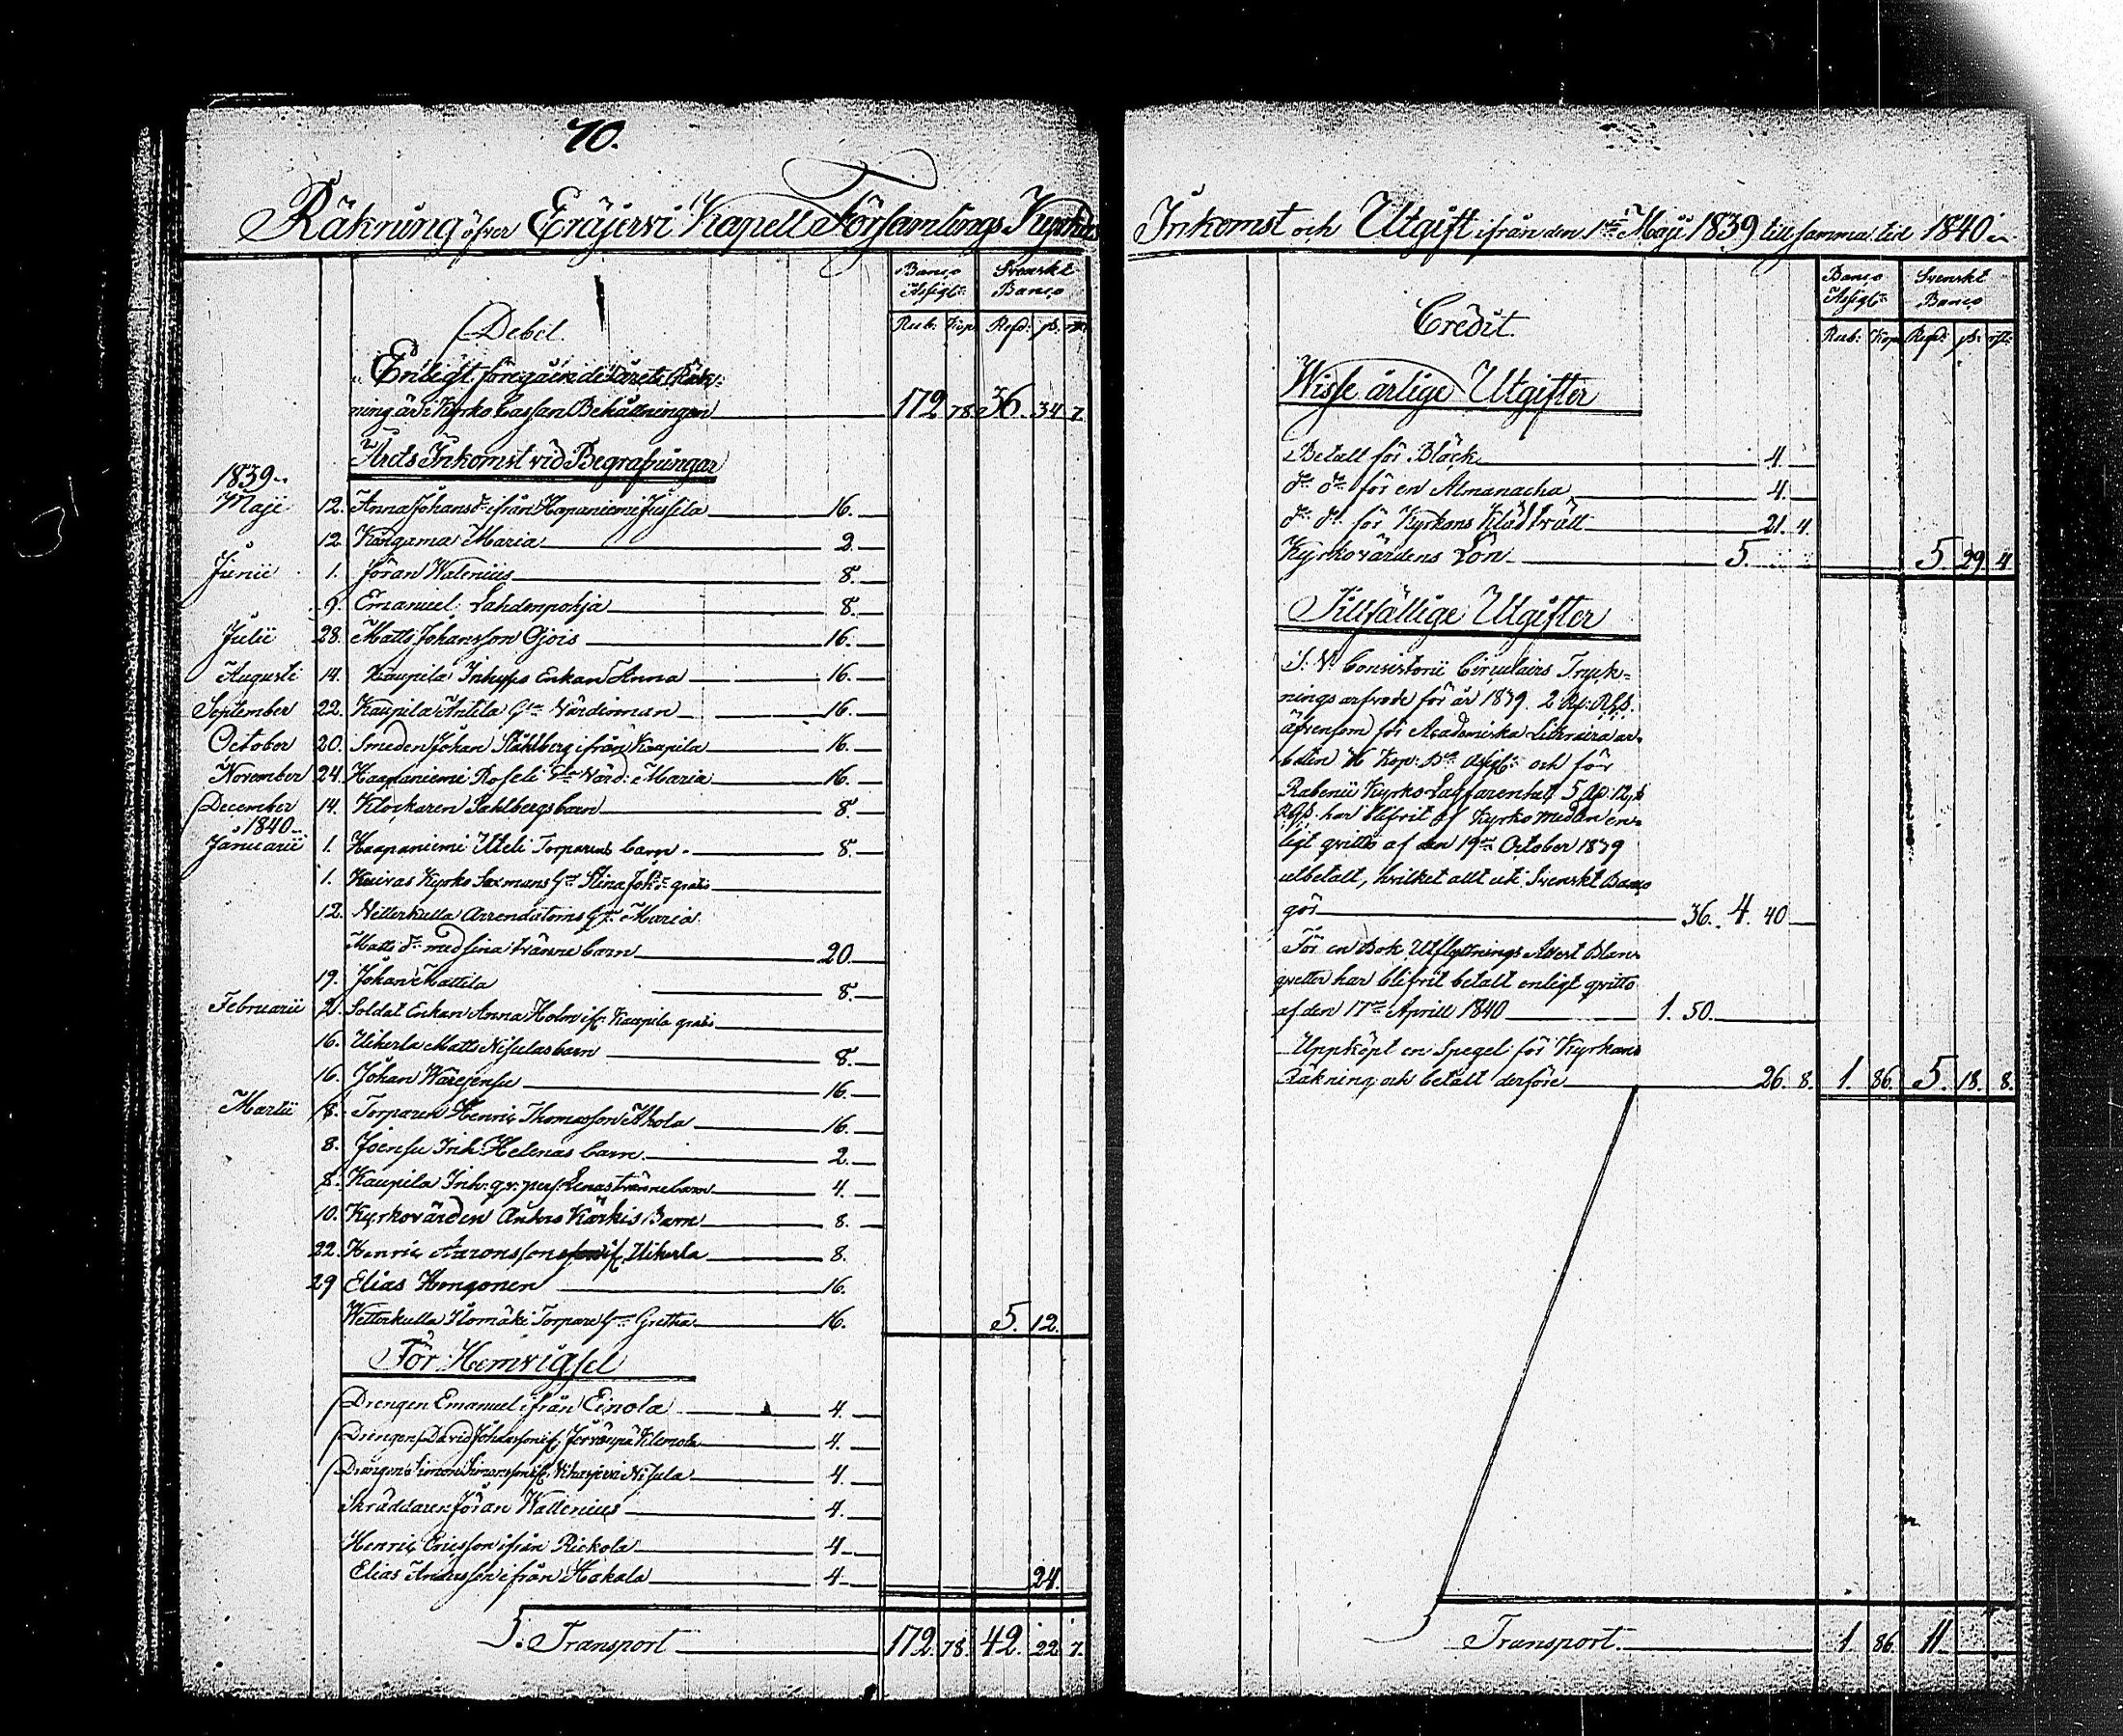 70.
Räkning öfver Eräjervi Kapell Församlings Kyrkas
Banco Assigt: Svenskt Banco
Rub: Kop: Rgd: ß. rst:
Debet.
Enligt föregående årets Räk-
ning är i Kyrko Cassan Behållningen 172 78. 36. 34 7.
Årets Inkomst vid Begrafningar
1839
Maji 12. Anna Johans dr ifrån Hapaniemi Jussila 16.
12 Kangama Maria 2.
Junii 1. Jöran Walenius 8.
9. Emanuel Lahdenpohja 8.
Julii 28. Matts Johansson Ojois 16.
Augusti 14. Kaupila Inhyses Enkan Anna 16.
September 22. Kaupila Antila Gla Värdinnan 16.
October 20. Smeden Johan Ståhlberg ifrån Kaupila 16.
November 24. Haapaniemi Roseli Gla Värd: Maria 16.
December 14. Klockaren Sahlbergs barn 8.
1840
Januarii 1. Haapaniemi Uteli Torparens barn 8.
1. Kuivas Kyrko Saxmans Stina Joh: dr gratis
12. Arrendatorns Maria
Matts dr med sina tvänne barn 20
19. Johan Mattila 8.
Februarii 2. Soldat Enkan Anna Holm if. Kaupila gratis
16. Uiherla Matts Nisulas barn 8.
16. Johan Wärejensu 16.
Martii 8. Torparen Henric Thomasson Ahola 16.
8. Joensu Inh. Helenas barn 2.
8. Kaupila Inh. qv: pers: Lenas tvänne barn 4.
10. Kyrkovärden Anders Kärkis Barn 8.
22. Henric Aaronsson if. Uiherla 8.
29 Elias Hongonen 16.
Wetterkulla Ilomäki Torpare Gretha 16. 5. 12.
För Hemvigsel
Drengen Emanuel ifrån Einola 4.
Drengen David Johansson if. Järvenpä Klemola 4.
Drängen Simon Simonsson if. Nisula 4.
Skräddaren Jöran Wallenius 4.
Henric Ericsson ifrån Rickola 4
Elias Andersson ifrån Hakala 4 24.
Transport 172. 78. 42. 22. 7.
Inkomst och Utgift ifrån den 1sta Maji 1839 till samma tid 1840
Banco Assigt: Svenskt Banco
Rub: Kop: Rgd: ß: rst:
Credit.
Wisse årlige Utgifter
Betalt för Bläck 4.
do do för en Almanacha 4.
do do för Kyrkans Klädtvätt 21. 4.
Kyrkovärdens Lön 5. 5. 29 4
Tillfällige Utgifter
S: V: Consistorii Circulairs Tryck-
nings arfvode för år 1839. 2 Rd: Rgs.
äfvensom för Academiska Literaira ar-
beten 36 Kop: Bco Assigt: och för
Rabenii Kyrko Lagfarenhet 5 Rd: 12 ß
Rgs. har blifvit af Kyrko medlen en-
ligt qvitto af den 19de October 1839
utbetalt, hvilket allt uti Svenskt Banco
gör 36. 4. 40
För en Bok Utflyttnings Attest Blan-
qvetter har blifvit betalt enligt qvitto
af den 17de Aprill 1840 1. 50.
Uppköpt en Spegel för Kyrkans
Räkning och betalt derföre 26. 8. 1. 86. 5. 18. 8.
Transport. 1. 86 11.